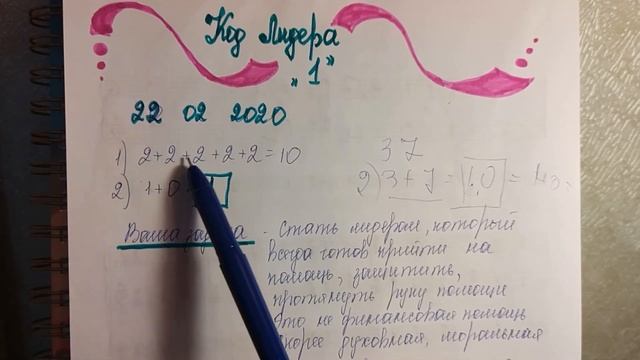 Код Лидера
„1”
22 02 2020
1) 2+2+2+2+2=10
37
2) 1+0
2) 3+7 = 10 =
Ваша
- Стать лидером, который
всегда готов прийти на
помощь, защитить,
протянуть руку помощи
Это не финансовая помощь
скорее духовная, моральная